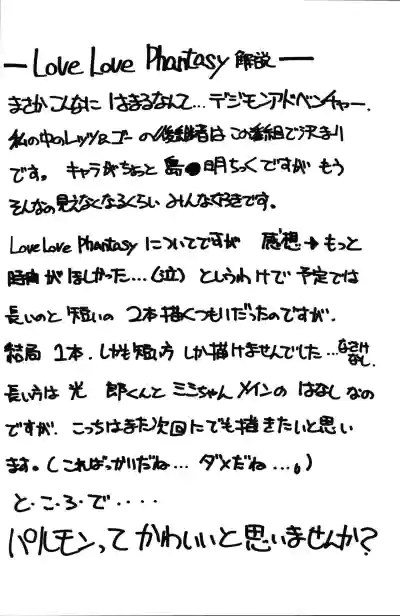 — Love Love Phantasy 解説 —
まさかこんなに はまるなんて… デジモンアドベンチャー.
私の中のレッツ&ゴー の後継者は この番組で決まり
です。 キャラがちょっと 島●明ちっくですが もう
そんなの見えなくなるくらい みんな好きです。
Love Love Phantasy についてですが 感想→もっと
時間 が ほしかった…(泣) というわけで 予定では
長いのと 短いの 2本描くつもりだったのですが.
結局 1本. しかも短い方 しか描けませんでした…なさけなし.
長い方は 光 郎くんと ミミちゃん メインの はなし なの
ですが. こっちはまた次回にでも描きたいと思い
ます。(こればっかいだね… ダメだね…。)
と・こ・ろ・で・・・・
パルモンって かわいいと思いませんか?